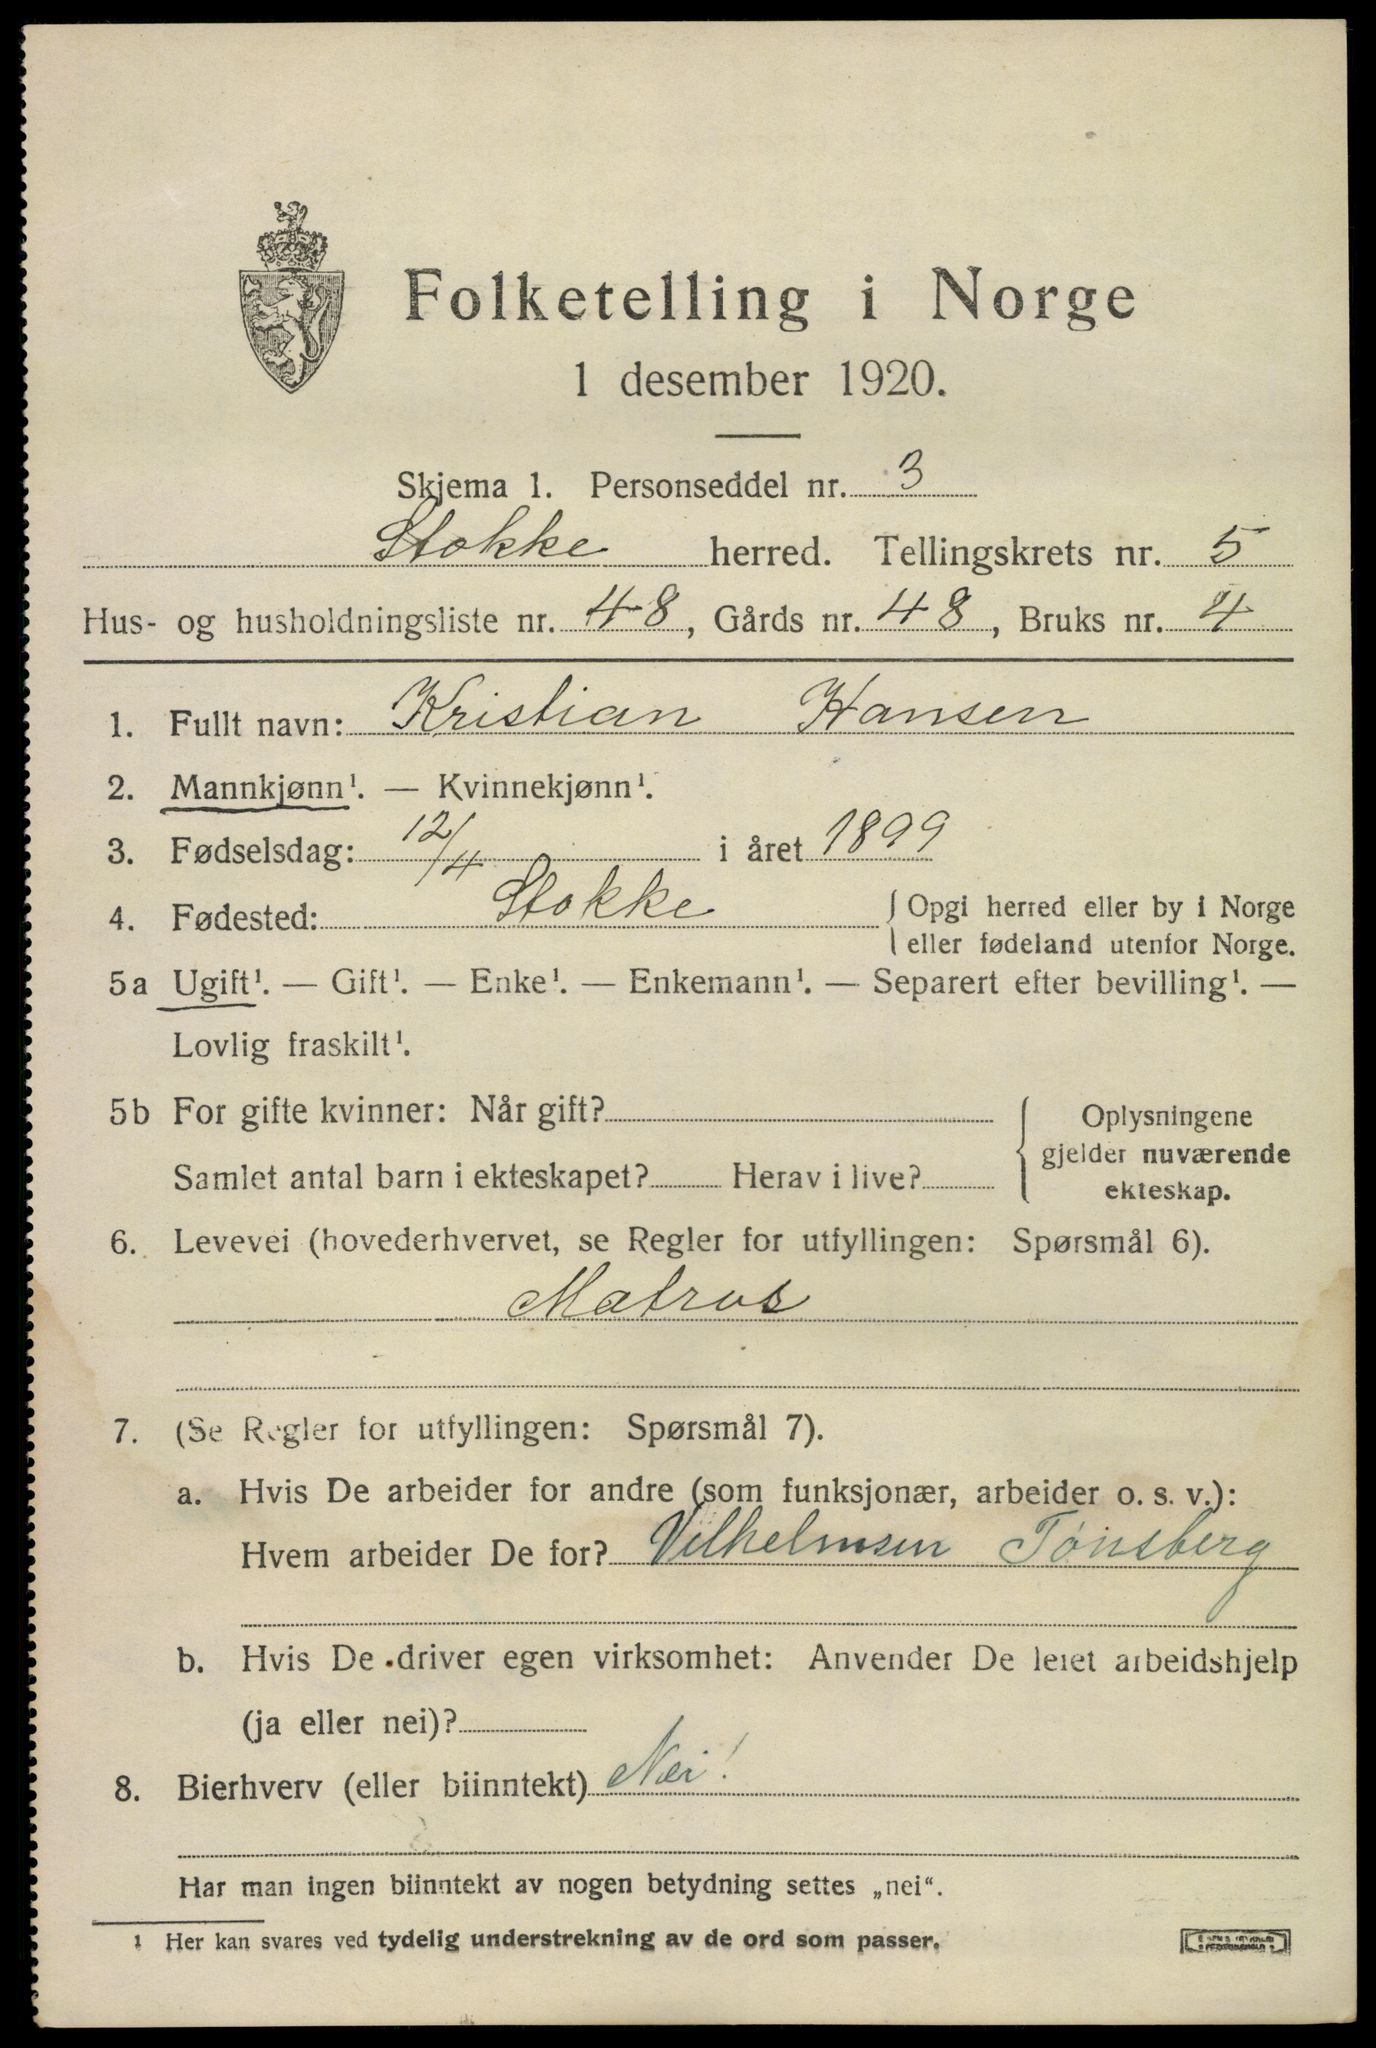 Folketelling i Norge
1 desember 1920.
Skjema 1. Personseddel nr. 3
Stokke herred. Tellingskrets nr. 5
Hus- og husholdningsliste nr. 48, Gårds nr. 48, Bruks nr. 4
1. Fullt navn: Kristian Hansen
2. Mannkjønn¹. — Kvinnekjønn¹.
3. Fødselsdag: 12/4 i året 1899
4. Fødested: Stokke { Opgi herred eller by i Norge
eller fødeland utenfor Norge.
5a Ugift¹. — Gift¹. — Enke¹. — Enkemann¹. — Separert efter bevilling¹. —
Lovlig fraskilt¹.
5b For gifte kvinner: Når gift?
Samlet antal barn i ekteskapet? Herav i live?
{ Oplysningene
gjelder nuværende
ekteskap.
6. Levevei (hovederhvervet, se Regler for utfyllingen: Spørsmål 6).
Matros
7. (Se Regler for utfyllingen: Spørsmål 7).
a. Hvis De arbeider for andre (som funksjonær, arbeider o. s. v.):
Hvem arbeider De for? Vilhelmsen Tønsberg
b. Hvis De driver egen virksomhet: Anvender De leiet arbeidshjelp
(ja eller nei)?
8. Bierhverv (eller biinntekt) Nei!
Har man ingen biinntekt av nogen betydning settes „nei“.
¹ Her kan svares ved tydelig understrekning av de ord som passer.